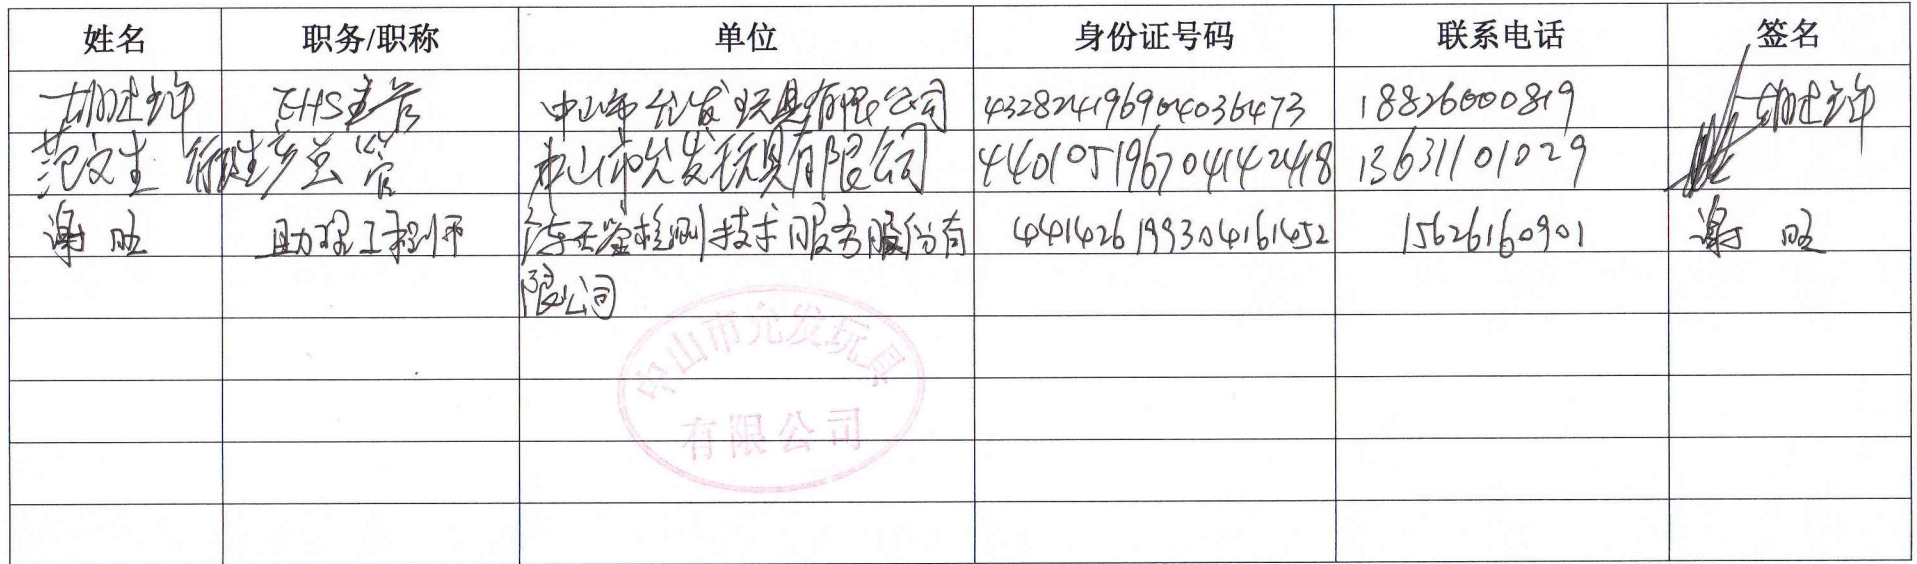 姓名 职务/职称 单位 身份证号码 联系电话 签名
EHS主管 中山市允发玩具有限公司 432824196904036473 18826000819
范文生 行政生产总管 中山市允发玩具有限公司 440105196704142418 13631101029
谢旺 助理工程师 天鉴检测技术服务股份有 441426199304161452 15626160901 谢旺
限公司
中山市允发玩具
有限公司